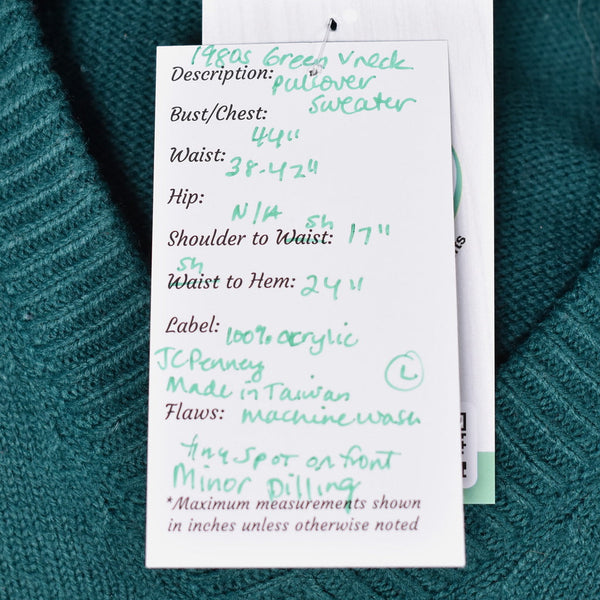 1980s Green V neck
Description: Pullover
Sweater
Bust/Chest:
44"
Waist:
38-42"
Hip:
N/A
Shoulder to Waist: sh 17"
Waist sh to Hem: 24"
Label: 100% acrylic
JCPenney
Made in Taiwan
L
Flaws: machine wash
tiny spot on front
Minor Pilling
*Maximum measurements shown
in inches unless otherwise noted